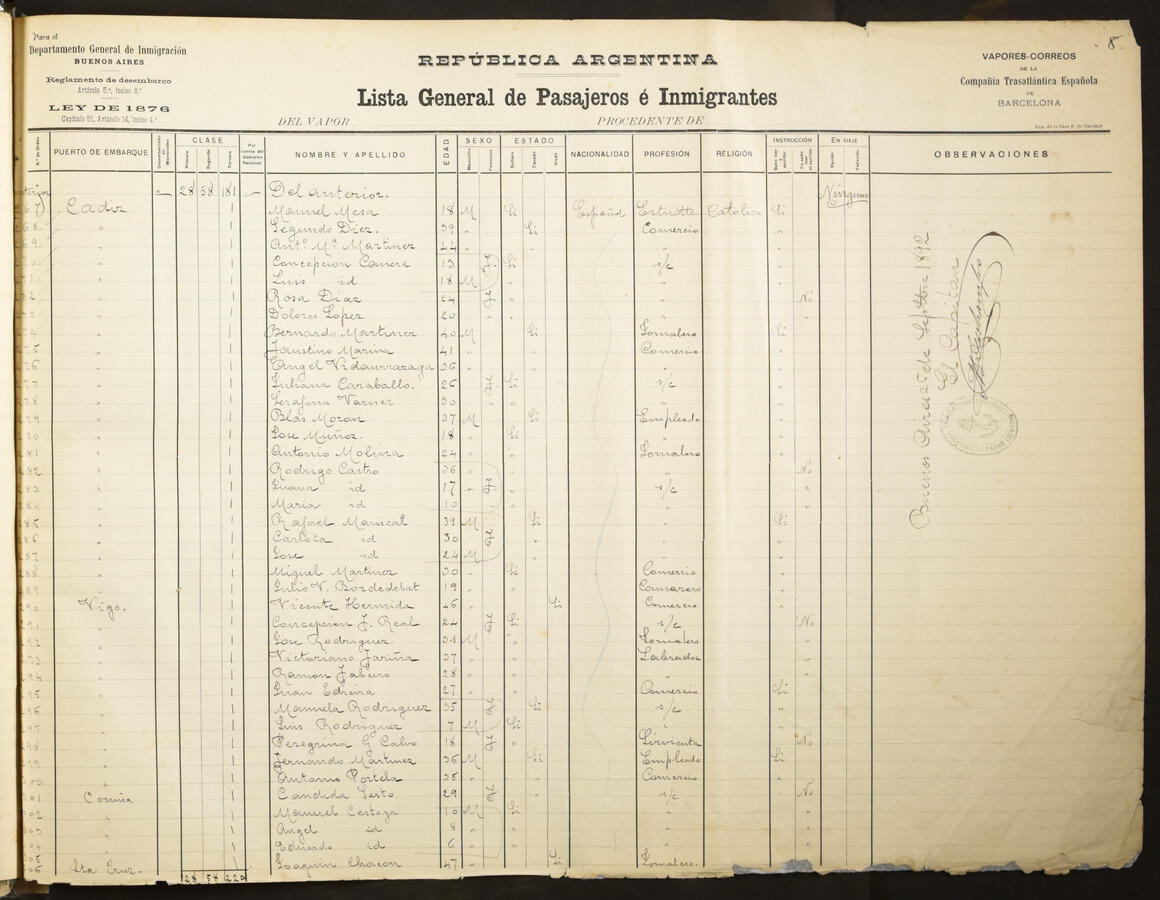 Para el
Departamento General de Inmigración
BUENOS AIRES
Reglamento de desembarco
Artículo 5.º, Inciso 8.º
LEY DE 1876
Capítulo 51, Artículo 14, Inciso 4.º
REPÚBLICA ARGENTINA
Lista General de Pasajeros é Inmigrantes
DEL VAPOR PROCEDENTE DE
8.
VAPORES-CORREOS
DE LA
Compañia Trasatlántica Española
DE
BARCELONA
Imp. de la Casa P. de Caridad
N.º de Orden PUERTO DE EMBARQUE CLASE Primera Segunda Tercera Por cuenta del Gobierno Nacional NOMBRE Y APELLIDO EDAD SEXO Masculino Femenino ESTADO Soltero Casado Viudo NACIONALIDAD PROFESIÓN RELIGIÓN INSTRUCCIÓN EN VIAJE Nacido Fallecido OBSERVACIONES
28 58 181 Del anterior. Ninguno
67 Cadiz 1 Manuel Mesa 18 M Si Español Estudte Catolica Si
68 " 1 Segundo Diez. 39 " Si Comercio "
69 " 1 Antº Mª Martinez 44 " " " "
70 " 1 Concepcion Canera 13 Si s/c "
71 " 1 Luis id 18 M " " "
" 1 Rosa Diaz 24 " " No
" 1 Dolores Lopez 20 " " "
74 " 1 Bernardo Martinez 40 M Si Jornalero Si
75 " 1 Faustino Marina 41 " " Comercio "
76 " 1 Angel Vidaurrazaga 36 " " " "
77 " 1 Juliana Caraballo. 26 Si s/c "
78 " 1 Serafina Varner 30 " " "
79 " 1 Blas Moran 37 M Si Empleado "
80 " 1 Jose Muñoz. 18 " Si " "
81 " 1 Antonio Molina 24 " " Jornalero "
82 " 1 Rodrigo Castro 36 " " " No
83 " 1 Juana id 17 " s/c "
84 " 1 Maria id 10 " " "
85 " 1 Rafael Mariscal 39 M Si " Si
86 " 1 Carlota id 30 " " "
87 " 1 Jose id 24 M " " "
88 " 1 Miguel Martinez 30 " Si Comercio "
89 " 1 Julio V. Bordedebat 19 " " Camarero "
90 Vigo. 1 Vicente Hermida 46 " Si Comercio "
91 " 1 Concepcion F. Real 24 Si s/c No
92 " 1 Jose Rodriguez. 31 M " Jornalero "
93 " 1 Victoriano Fariña 37 " " Labrador "
94 " 1 Ramon 28 " " " "
95 " 1 Juan Edreira 27 " " Comercio Si
96 " 1 Manuela Rodriguez 35 Si s/c "
97 " 1 Luis Rodriguez 7 M Si " "
98 " 1 Peregrina G Calvo 18 " Sirvienta No
99 " 1 Fernando Martinez 36 M Si Empleado Si
00 " 1 Antonio Portela 35 " " Comercio "
01 Coruña 1 Candida Sesto 29 " s/c No
02 " 1 Manuel Cestoza 10 M Si " "
03 " 1 Angel id 8 " " " "
04 " 1 Eduardo id 6 " " " "
06 Sta Cruz. 1 Joaquin Chacon 47 " Si Jornalero. "
28 58 220
Buenos Aires 25 de Septbre 1892
El Capitan